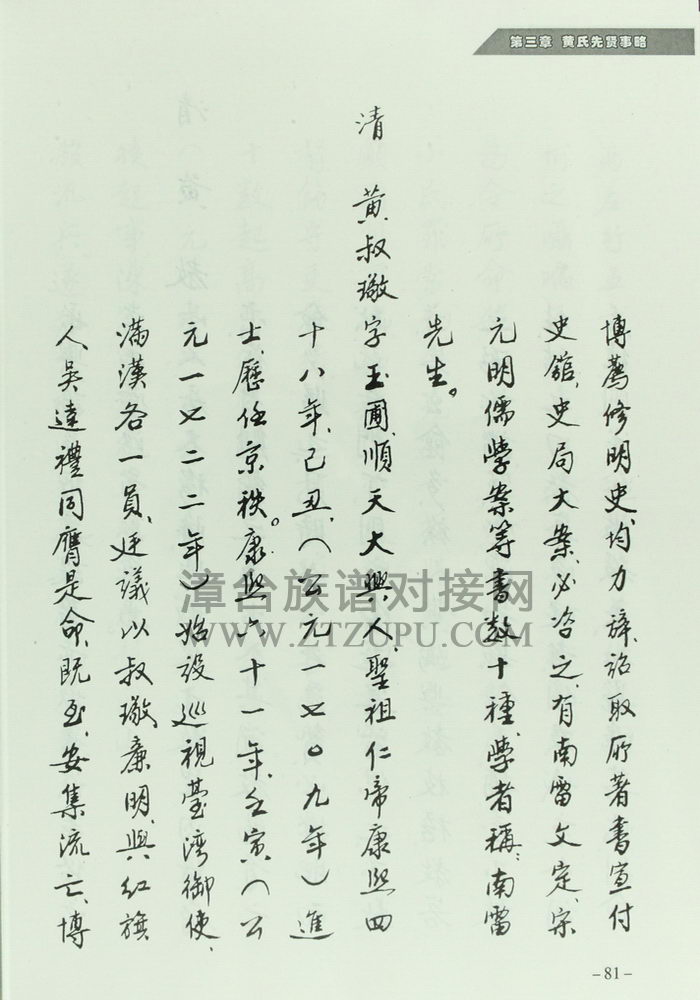 第三章 黄氏先贤事略
博薦修明史、均力辞、詔取所著書宣付
史館、史局大案、必咨之、有南雷文定、宋
元明儒學案等書数十種、學者稱：南雷
先生。
清 黄叔璥字玉圃、順天大興人、聖祖仁帝康熙四
十八年、己丑、（公元一七〇九年）進
士、歷任京秩。康熙六十一年、壬寅（公
元一七二二年）始設巡視臺湾御使、
滿漢各一員、廷議以叔璥廉明、與紅旗
人、吳達禮同膺是命、既至、安集流亡、博
漳台族谱对接网
WWW.ZTZUPU.COM
-81-